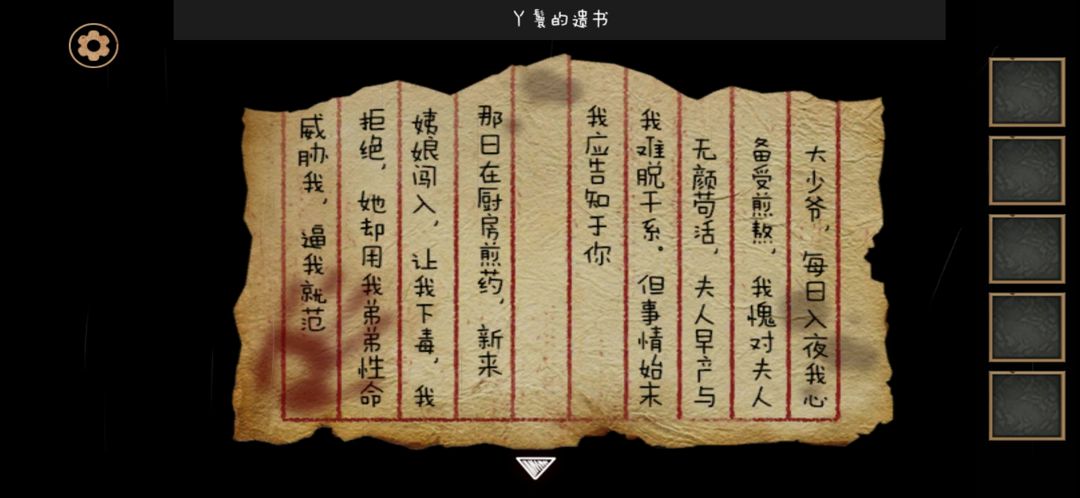 丫鬟的遗书
大少爷，每日入夜我心
备受煎熬，我愧对夫人
无颜苟活，夫人早产与
我难脱干系。但事情始末
我应告知于你
那日在厨房煎药，新来
姨娘闯入，让我下毒，我
拒绝，她却用我弟弟性命
威胁我，逼我就范